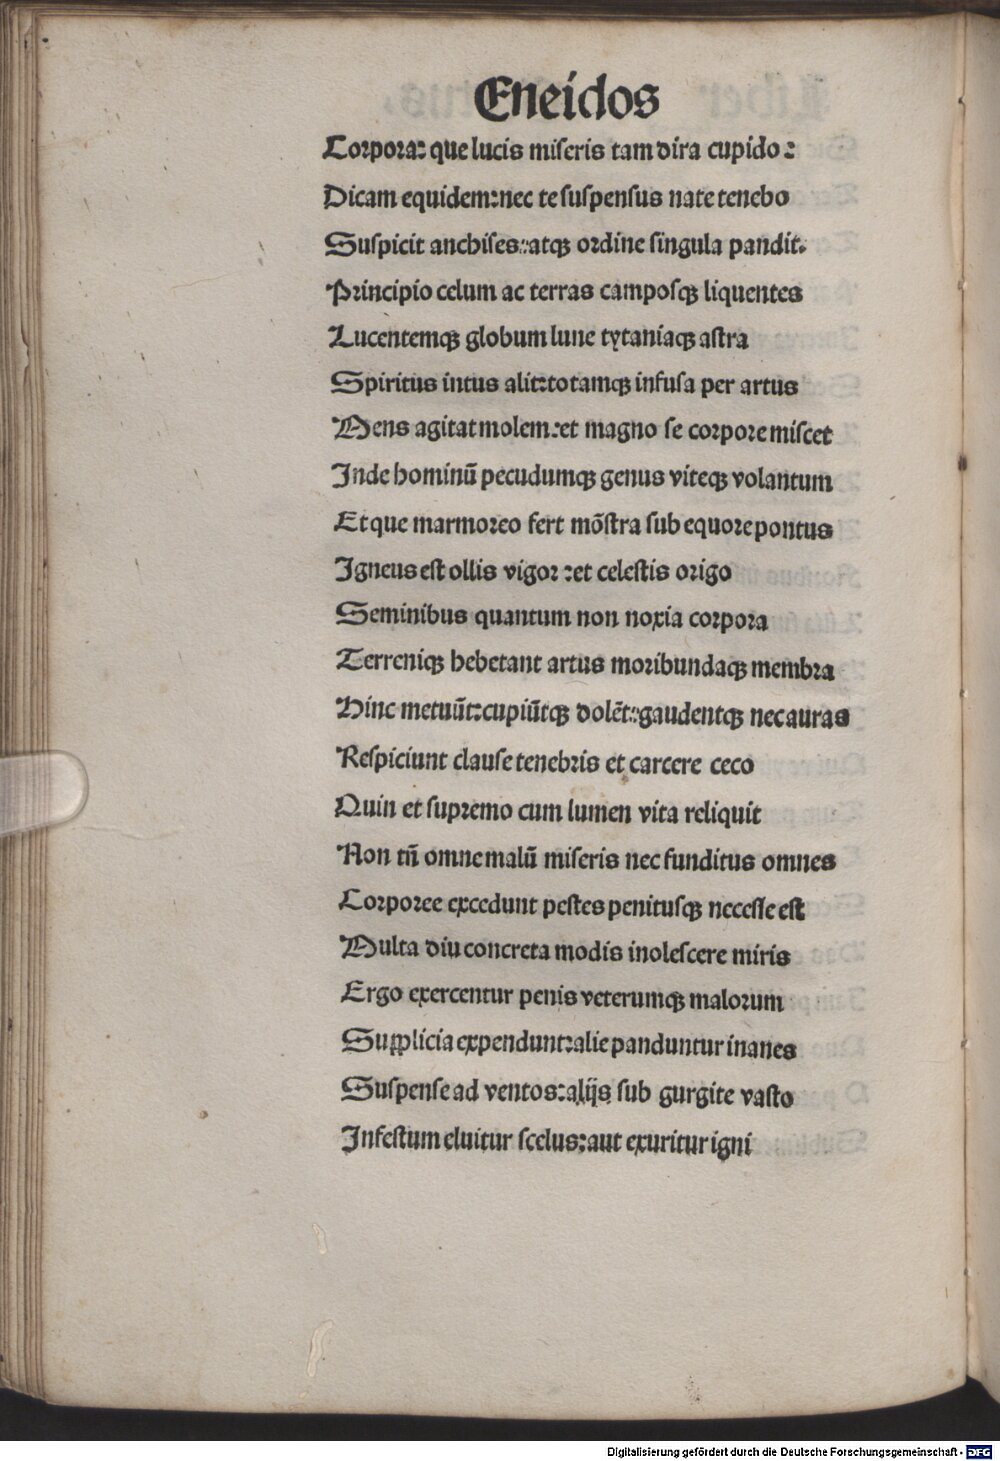 Eneidos
Corpora: que lucis miseris tam dira cupido:
Dicam equidem: nec te suspensus nate tenebo
Suspicit anchises: atqꝫ ordine singula pandit.
Principio celum ac terras camposqꝫ liquentes
Lucentemqꝫ globum lune tytaniaqꝫ astra
Spiritus intus alit: totamqꝫ infusa per artus
Mens agitat molem: et magno se corpore miscet
Inde hominū pecudumqꝫ genus viteqꝫ volantum
Et que marmoreo fert mōstra sub equore pontus
Igneus est ollis vigor: et celestis origo
Seminibus quantum non noxia corpora
Terreniqꝫ hebetant artus moribundaqꝫ membra
Hinc metuūt: cupiūtqꝫ dolēt: gaudentqꝫ nec auras
Respiciunt clause tenebris et carcere ceco
Quin et supremo cum lumen vita reliquit
Non tn̄ omne malū miseris nec funditus omnes
Corporee excedunt pestes penitusqꝫ necesse est
Multa diu concreta modis inolescere miris
Ergo exercentur penis veterumqꝫ malorum
Supplicia expendunt: alie panduntur inanes
Suspense ad ventos: alijs sub gurgite vasto
Infestum eluitur scelus: aut exuritur igni
Digitalisierung gefördert durch die Deutsche Forschungsgemeinschaft - DFG